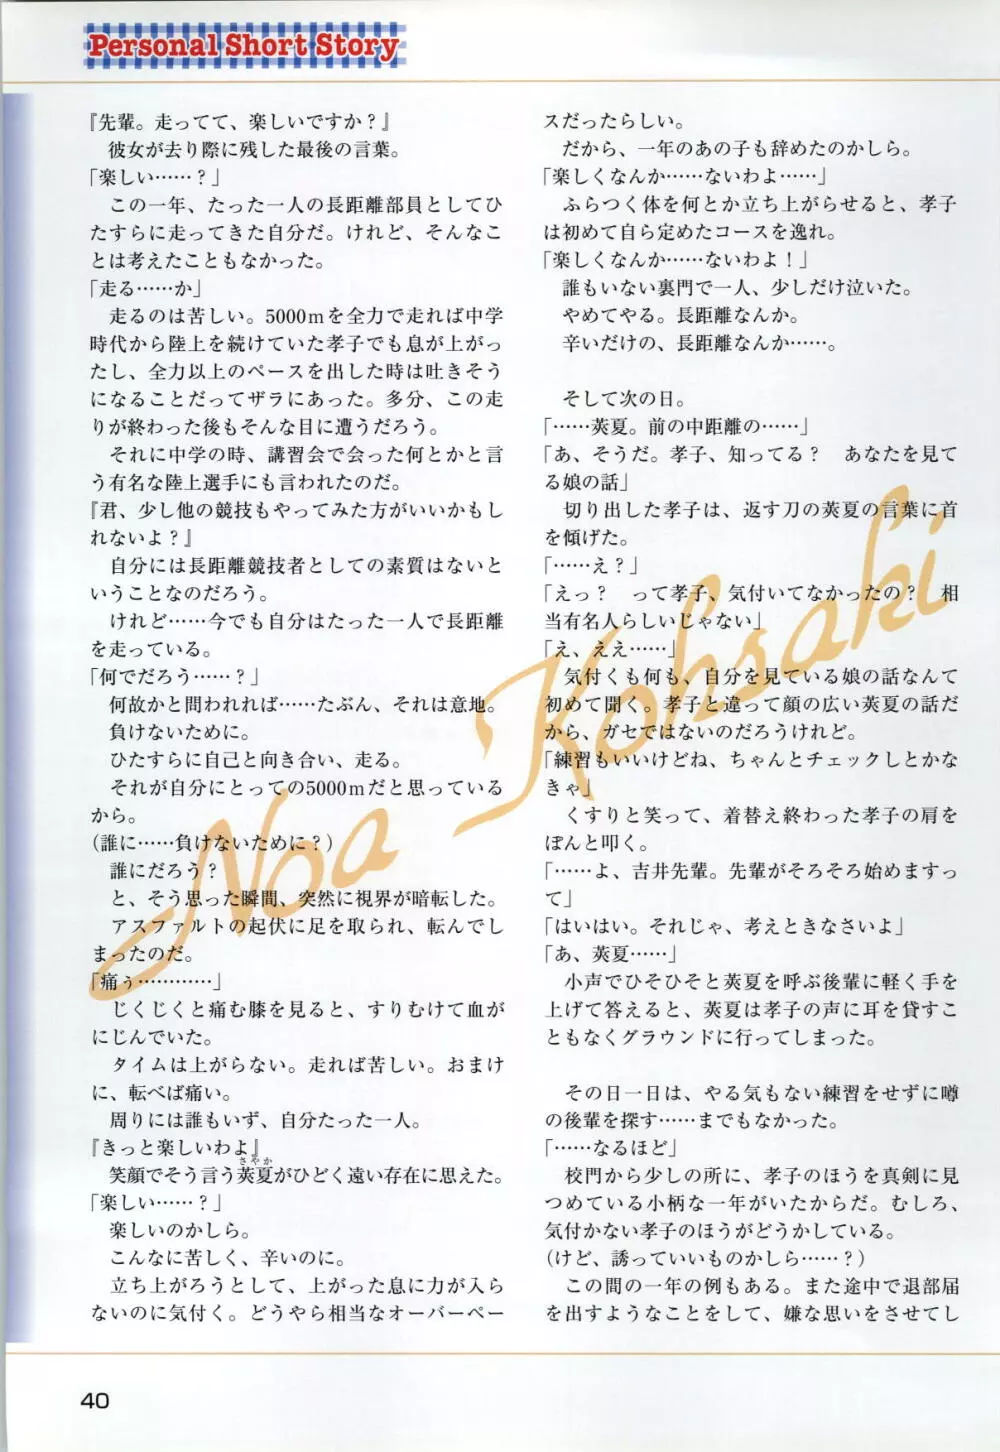 Personal Short Story
『先輩。走ってて、楽しいですか?』
彼女が去り際に残した最後の言葉。
「楽しい……?」
この一年、たった一人の長距離部員としてひ
たすらに走ってきた自分だ。けれど、そんなこ
とは考えたこともなかった。
「走る……か」
走るのは苦しい。5000mを全力で走れば中学
時代から陸上を続けていた孝子でも息が上がっ
たし、全力以上のペースを出した時は吐きそう
になることだってザラにあった。多分、この走
りが終わった後もそんな目に遭うだろう。
それに中学の時、講習会で会った何とかと言
う有名な陸上選手にも言われたのだ。
『君、少し他の競技もやってみた方がいいかもし
れないよ?』
自分には長距離競技者としての素質はないと
いうことなのだろう。
けれど……今でも自分はたった一人で長距離
を走っている。
「何でだろう……?」
何故かと問われれば……たぶん、それは意地。
負けないために。
ひたすらに自己と向き合い、走る。
それが自分にとっての5000mだと思っている
から。
(誰に……負けないために?)
誰にだろう?
と、そう思った瞬間、突然に視界が暗転した。
アスファルトの起伏に足を取られ、転んでし
まったのだ。
「痛ぅ…………」
じくじくと痛む膝を見ると、すりむけて血が
にじんでいた。
タイムは上がらない。走れば苦しい。おまけ
に、転べば痛い。
周りには誰もいず、自分たった一人。
『きっと楽しいわよ』
さやか
笑顔でそう言う莢夏がひどく遠い存在に思えた。
「楽しい……?」
楽しいのかしら。
こんなに苦しく、辛いのに。
立ち上がろうとして、上がった息に力が入ら
ないのに気付く。どうやら相当なオーバーペー
スだったらしい。
だから、一年のあの子も辞めたのかしら。
「楽しくなんか……ないわよ……」
ふらつく体を何とか立ち上がらせると、孝子
は初めて自ら定めたコースを逸れ。
「楽しくなんか……ないわよ!」
誰もいない裏門で一人、少しだけ泣いた。
やめてやる。長距離なんか。
辛いだけの、長距離なんか……。
そして次の日。
「……莢夏。前の中距離の……」
「あ、そうだ。孝子、知ってる? あなたを見て
る娘の話」
切り出した孝子は、返す刀の莢夏の言葉に首
を傾げた。
「……え?」
「えっ? って孝子、気付いてなかったの? 相
当有名人らしいじゃない」
「え、ええ……」
気付くも何も、自分を見ている娘の話なんて
初めて聞く。孝子と違って顔の広い莢夏の話だ
から、ガセではないのだろうけれど。
「練習もいいけどね、ちゃんとチェックしとかな
きゃ」
くすりと笑って、着替え終わった孝子の肩を
ぽんと叩く。
「……よ、吉井先輩。先輩がそろそろ始めますっ
て」
「はいはい。それじゃ、考えときなさいよ」
「あ、莢夏……」
小声でひそひそと莢夏を呼ぶ後輩に軽く手を
上げて答えると、莢夏は孝子の声に耳を貸すこ
ともなくグラウンドに行ってしまった。
その日一日は、やる気もない練習をせずに噂
の後輩を探す……までもなかった。
「……なるほど」
校門から少しの所に、孝子のほうを真剣に見
つめている小柄な一年がいたからだ。むしろ、
気付かない孝子のほうがどうかしている。
(けど、誘っていいものかしら……?)
この間の一年の例もある。また途中で退部届
を出すようなことをして、嫌な思いをさせてし
Noa Kohsaki
40